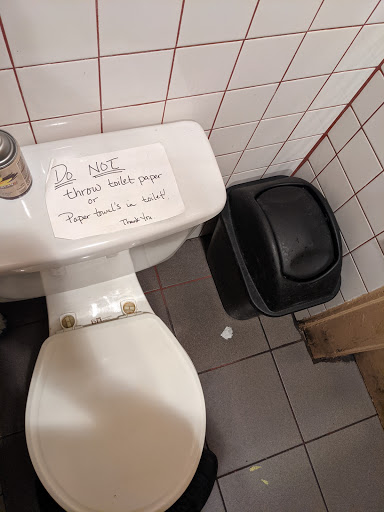 Do NOT
throw toilet paper
or
Paper towel's in toilet!
Thank You